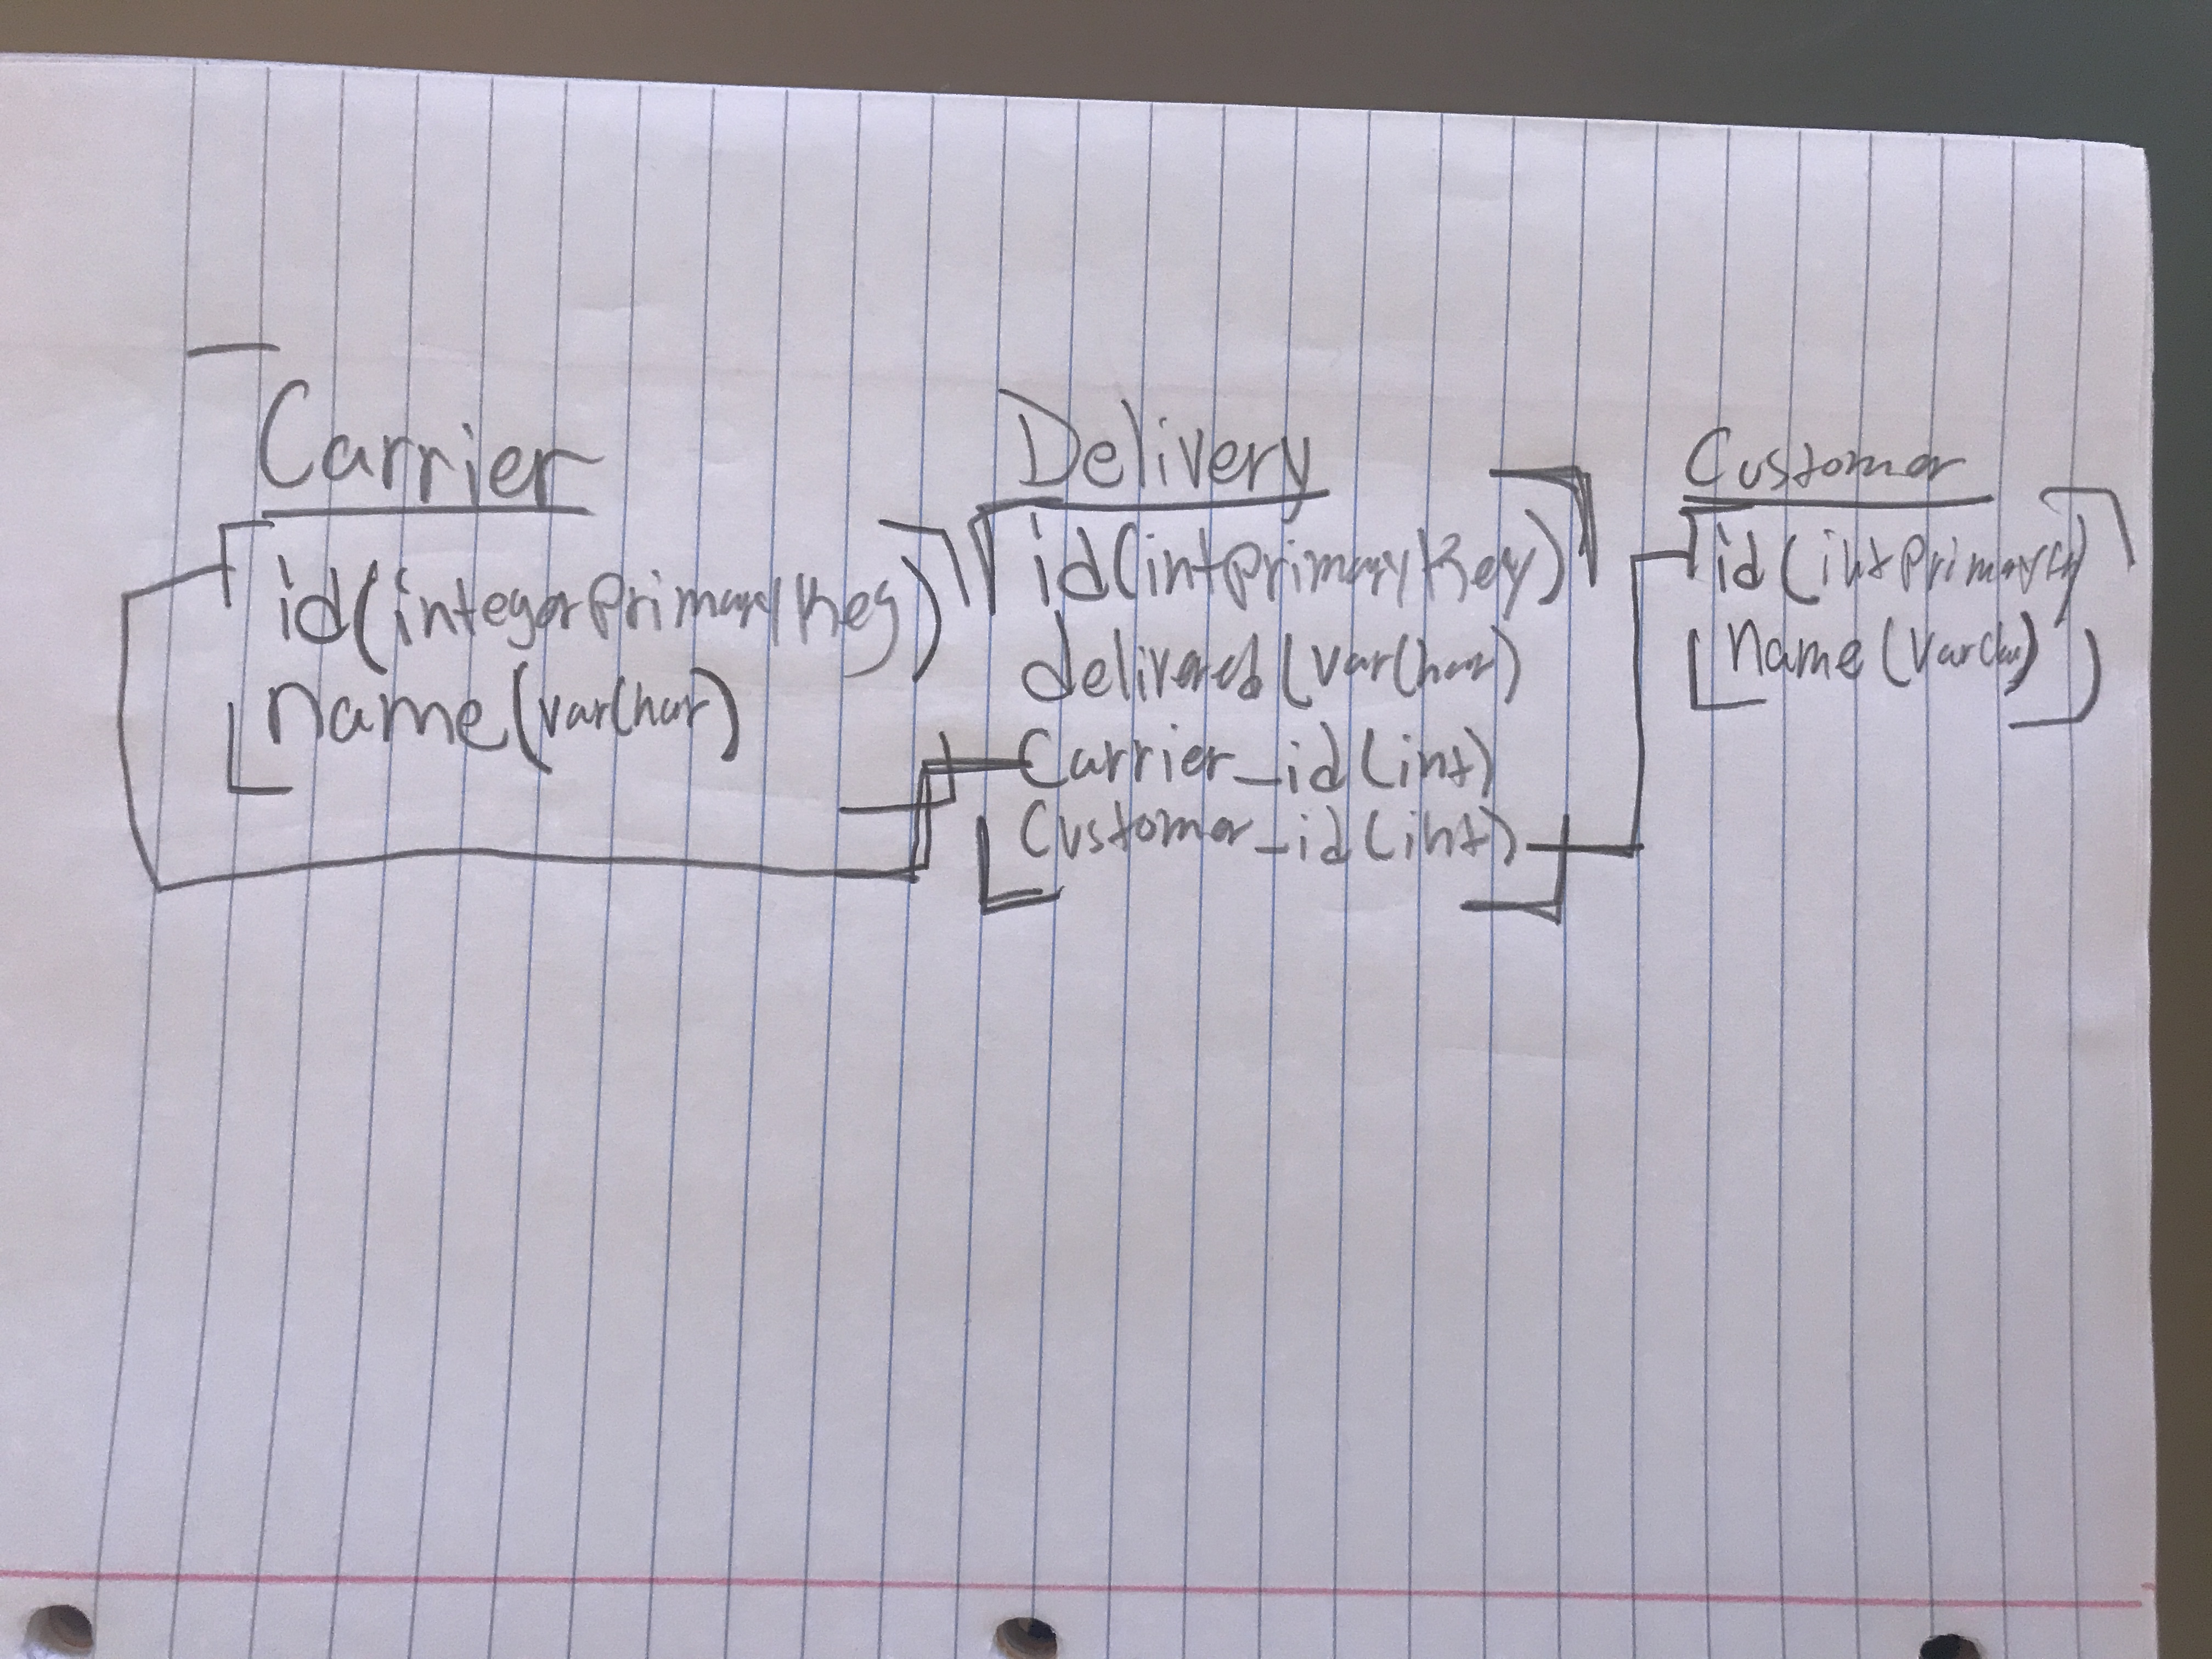 Carrier
id(integer Primary key)
name(varchar)
Delivery
id(int Primary Key)
delivered(varchar)
Carrier_id(int)
Customer_id(int)
Customer
id(int Primary)
name(varchar)